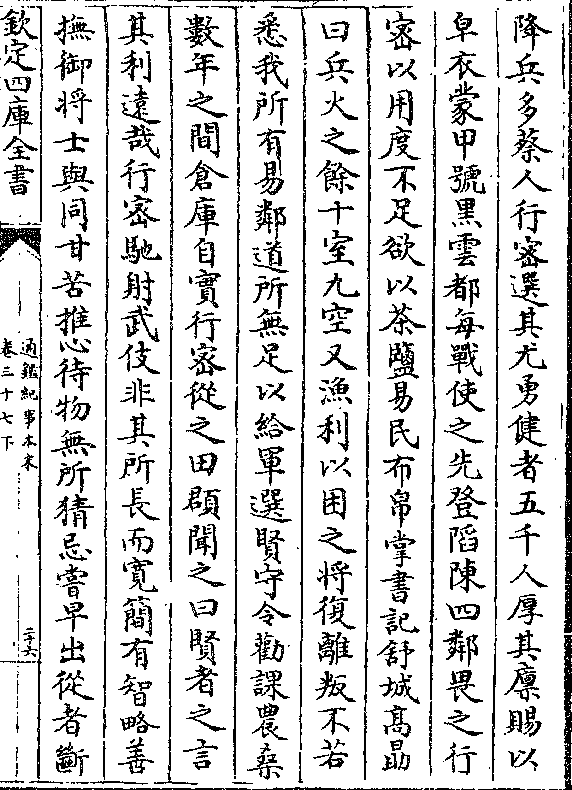 降兵多蔡人行密選其尤勇健者五千人厚其廪賜以
皁衣蒙甲號黑雲都每戰使之先登䧟陳四鄰畏之行
密以用度不足欲以茶鹽易民布帛掌書記舒城髙朂
曰兵火之餘十室九空又漁利以困之将復離叛不若
悉我所有易鄰道所無足以給軍選賢守令勸課農桑
數年之間倉庫自實行密從之田頵聞之曰賢者之言
其利遠哉行密馳射武伎非其所長而寛簡有智略善
撫御将士與同甘苦推心待物無所猜忌嘗早出從者斷
欽定四庫全書
通鑑紀事本末
卷三十七下
二十六